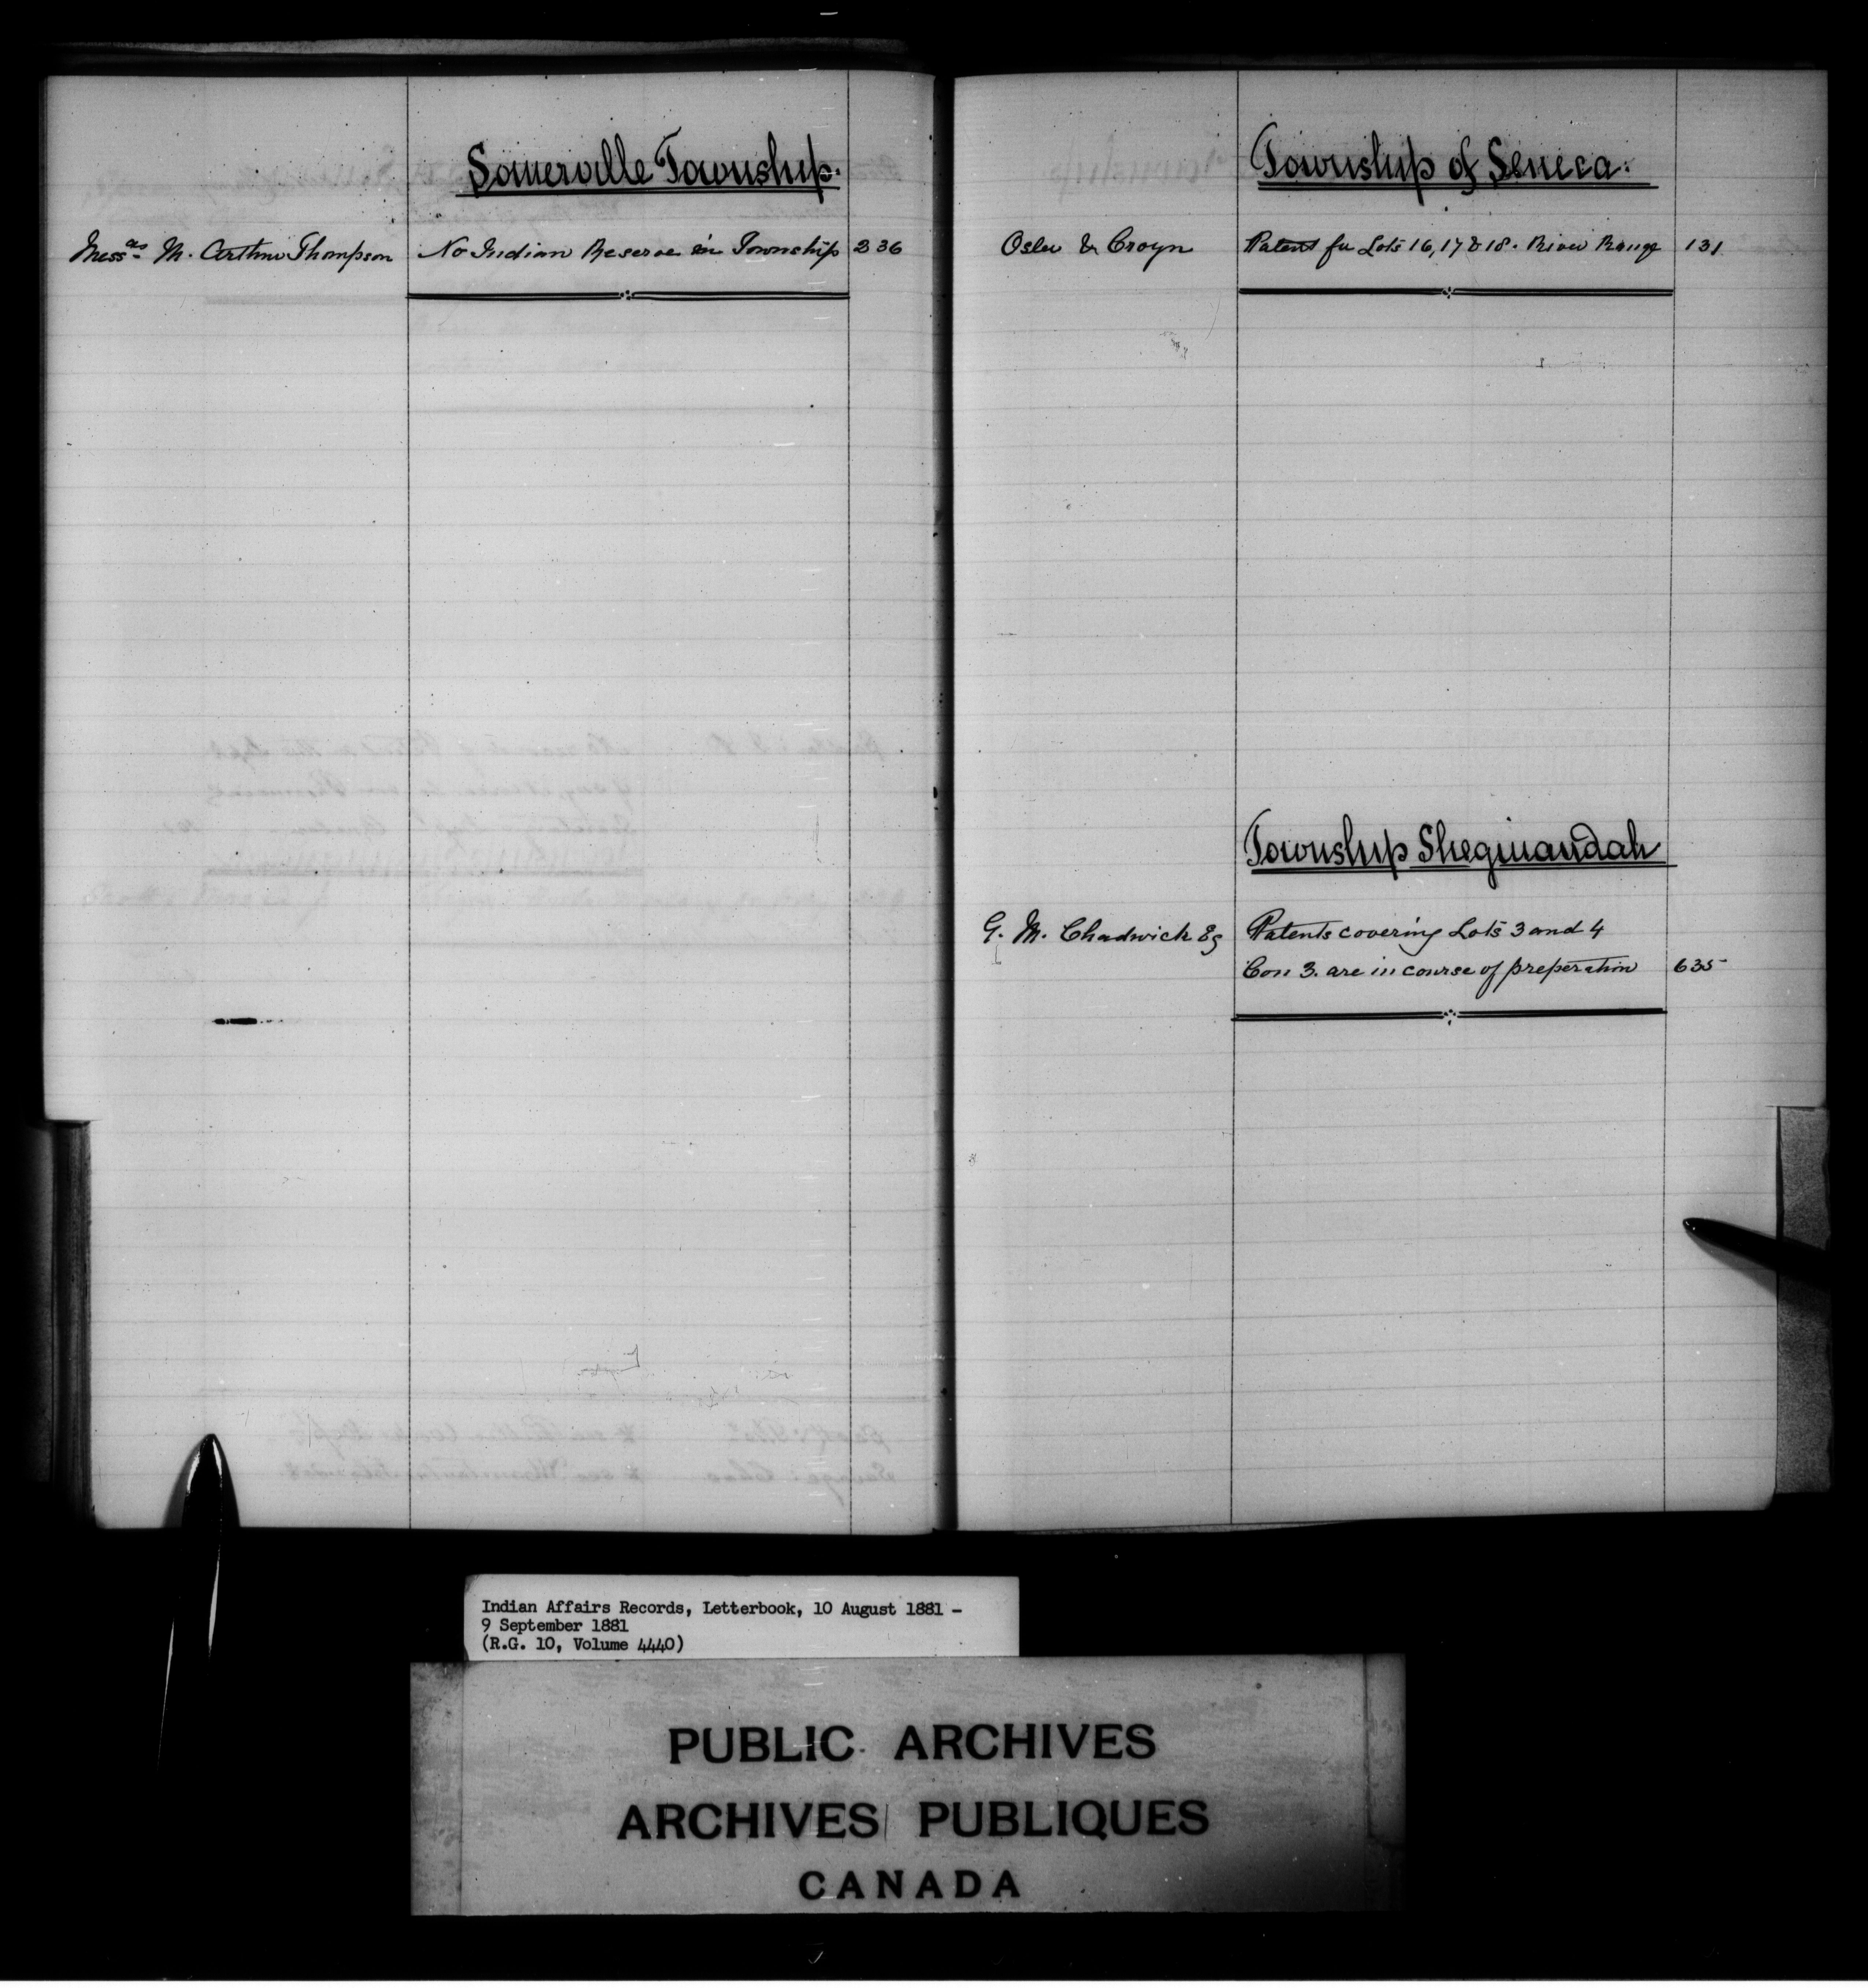 Somerville Township.
Messrs M. Arthur Thompson No Indian Reserve in Township 236
Township of Seneca.
Osler & Croyn Patent for Lots 16, 17 & 18. River Range 131
Township Sheguiandah
G. M. Chadwick Es Patents covering Lots 3 and 4
Con 3. are in course of preperation 635
Indian Affairs Records, Letterbook, 10 August 1881 -
9 September 1881
(R.G. 10, Volume 4440)
PUBLIC ARCHIVES
ARCHIVES PUBLIQUES
CANADA